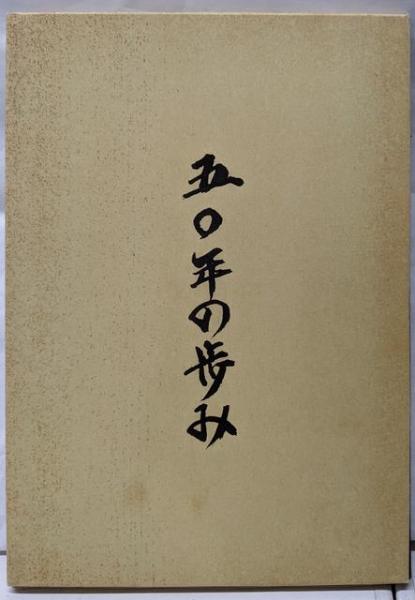 五〇年の歩み